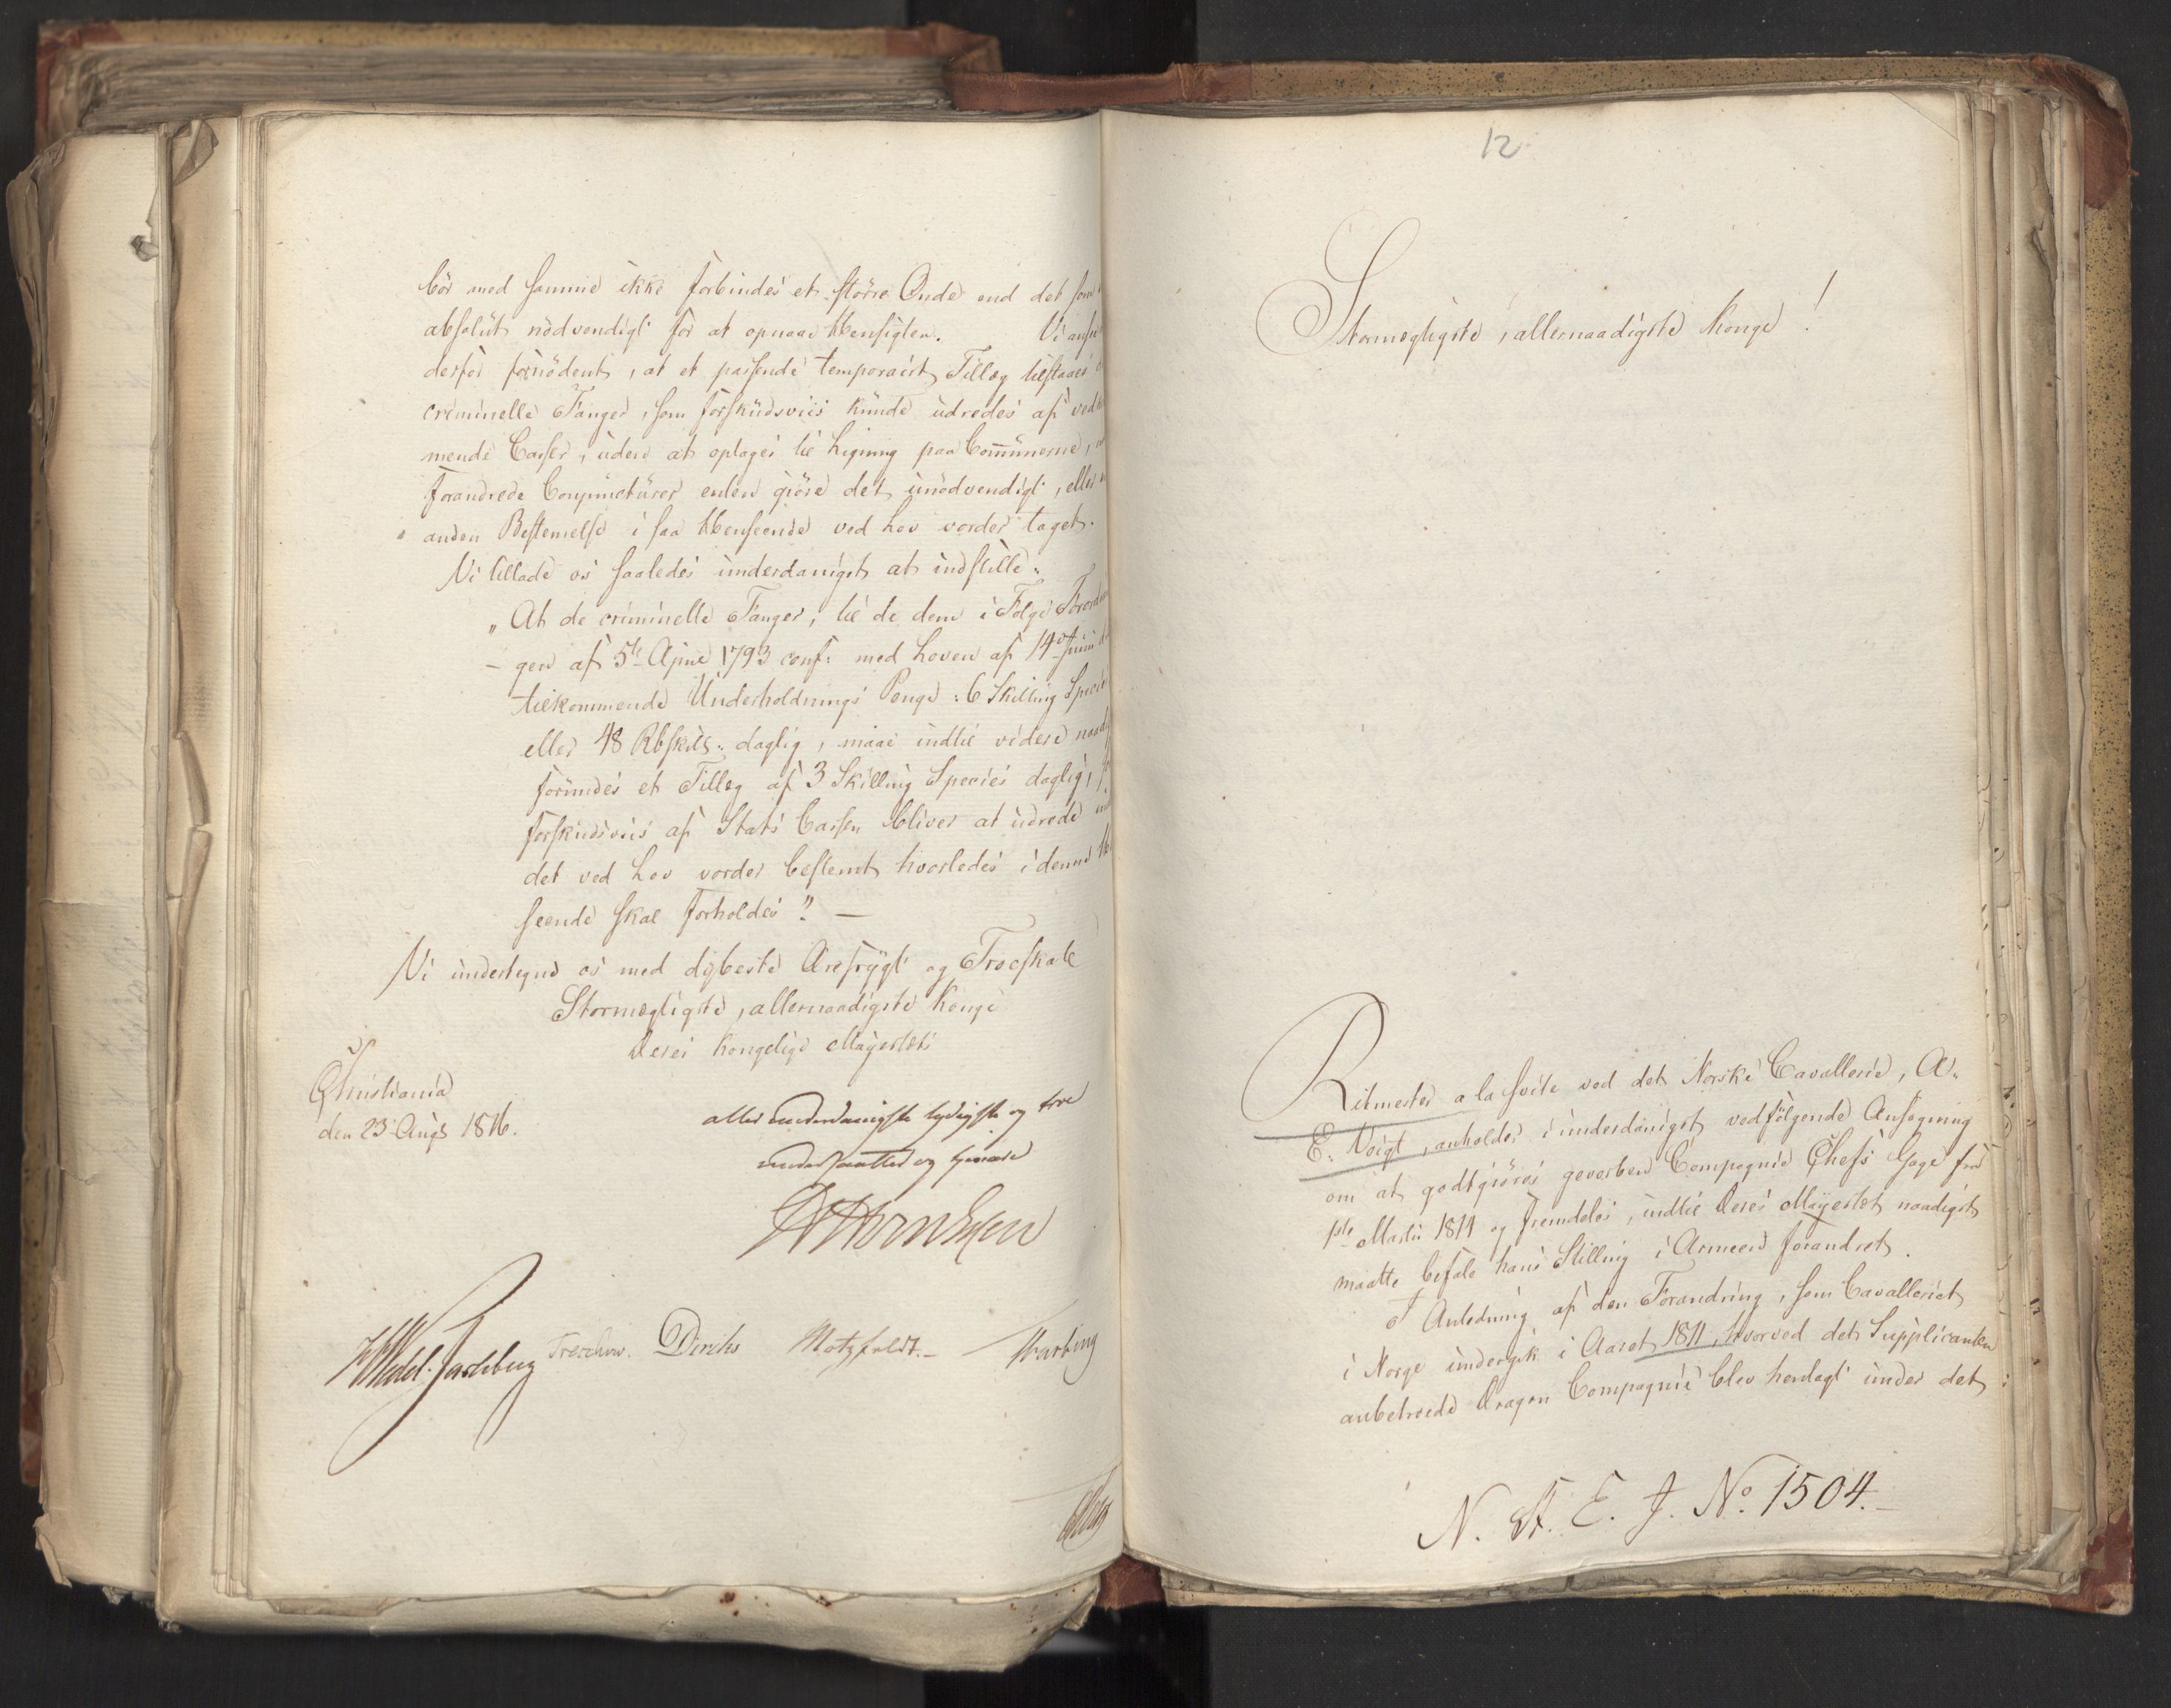 bör med samme ikke forbindes et større Onde end det som
absolut nødvendigt for at opnaae Hensigten. Vi ansee
derfor fornødent, at et passende temporairt Tillæg tilstaaes
criminelle Fanger, som forskudsviis kunde udredes af ved
mende Casser, uden at optages til Ligning paa Com̅unerne,
forandrede Conjuncturer enten giöre det unödvendigt, eller
anden Bestemelse i saa Henseende ved Lov vorder taget.
Vi tillade os saaledes underdanigst at indstille:
„At de criminelle Fanger, til de dem i Følge Forord
- gen af 5te April 1793 conf: med Loven af 14de Juni
tilkommende Underholdnings Penge: 6 Skilling Species
eller 48 Rbskill: daglig, maae indtil videre naad
forundes et Tillæg af 3 Skilling Species daglig,
forskudsviis af Stats Cassen bliver at udrede
det ved Lov vorder bestemt hvorledes i denne He
seende skal forholdes". —
Vi undertegne os med dybeste Ærefrygt og Troeskab
Stormægtigste, allernaadigste Konge
Deres Kongelige Majestæts
Christiania
den 23 Augs 1816.
allerunderdanigste lydigste og troe
undersaatter og tjenere
H Wedel-Jarlsberg Treschow. Diriks Motzfeldt.-
12
Stormægtigste, allernaadigste Konge!
Ritmester a la suite ved det Norske Cavallerie, A.
E. Voigt, anholder i underdanigst vedfölgende Ansøgning
om at godtgiöres gevorben Compagnie Chefs Gage fra
1ste Martii 1814 og fremdeles, indtil Deres Majestæt naadigst
maatte befale hans Stilling i Armeen forandret.
I Anledning af den Forandring, som Cavalleriet
i Norge undergik i Aaret 1811, hvorved det Supplicanten
anbetroede Dragon Compagnie blev henlagt under det
N. St. E. J. No. 1504.-